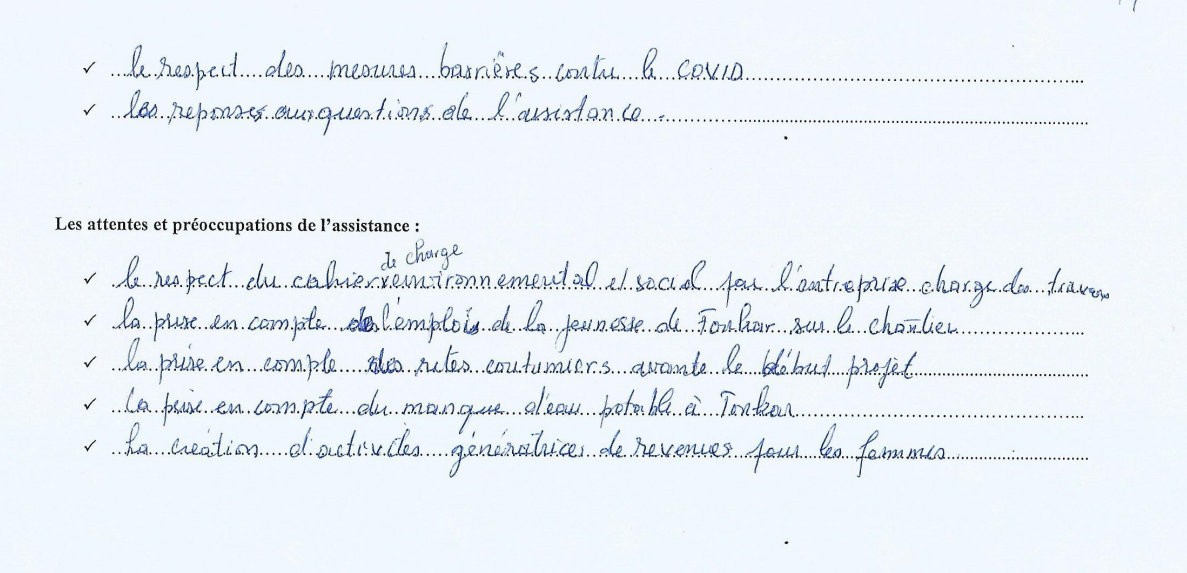 ✓ le respect des mesures barrières contre le COVID
✓ les reponses aux questions de l'assistance
Les attentes et préoccupations de l'assistance :
de charge
✓ le respect du cahier environnemental et social par l'entreprise charge des travaux
✓ la prise en compte de l'emplois de la jeunesse de Tonkar sur le chantier
✓ la prise en compte des rites coutumiers avante le début projet
✓ La prise en compte du manque d'eau potable à Tonkar
✓ La création d'activités génératrices de revenues pour les femmes